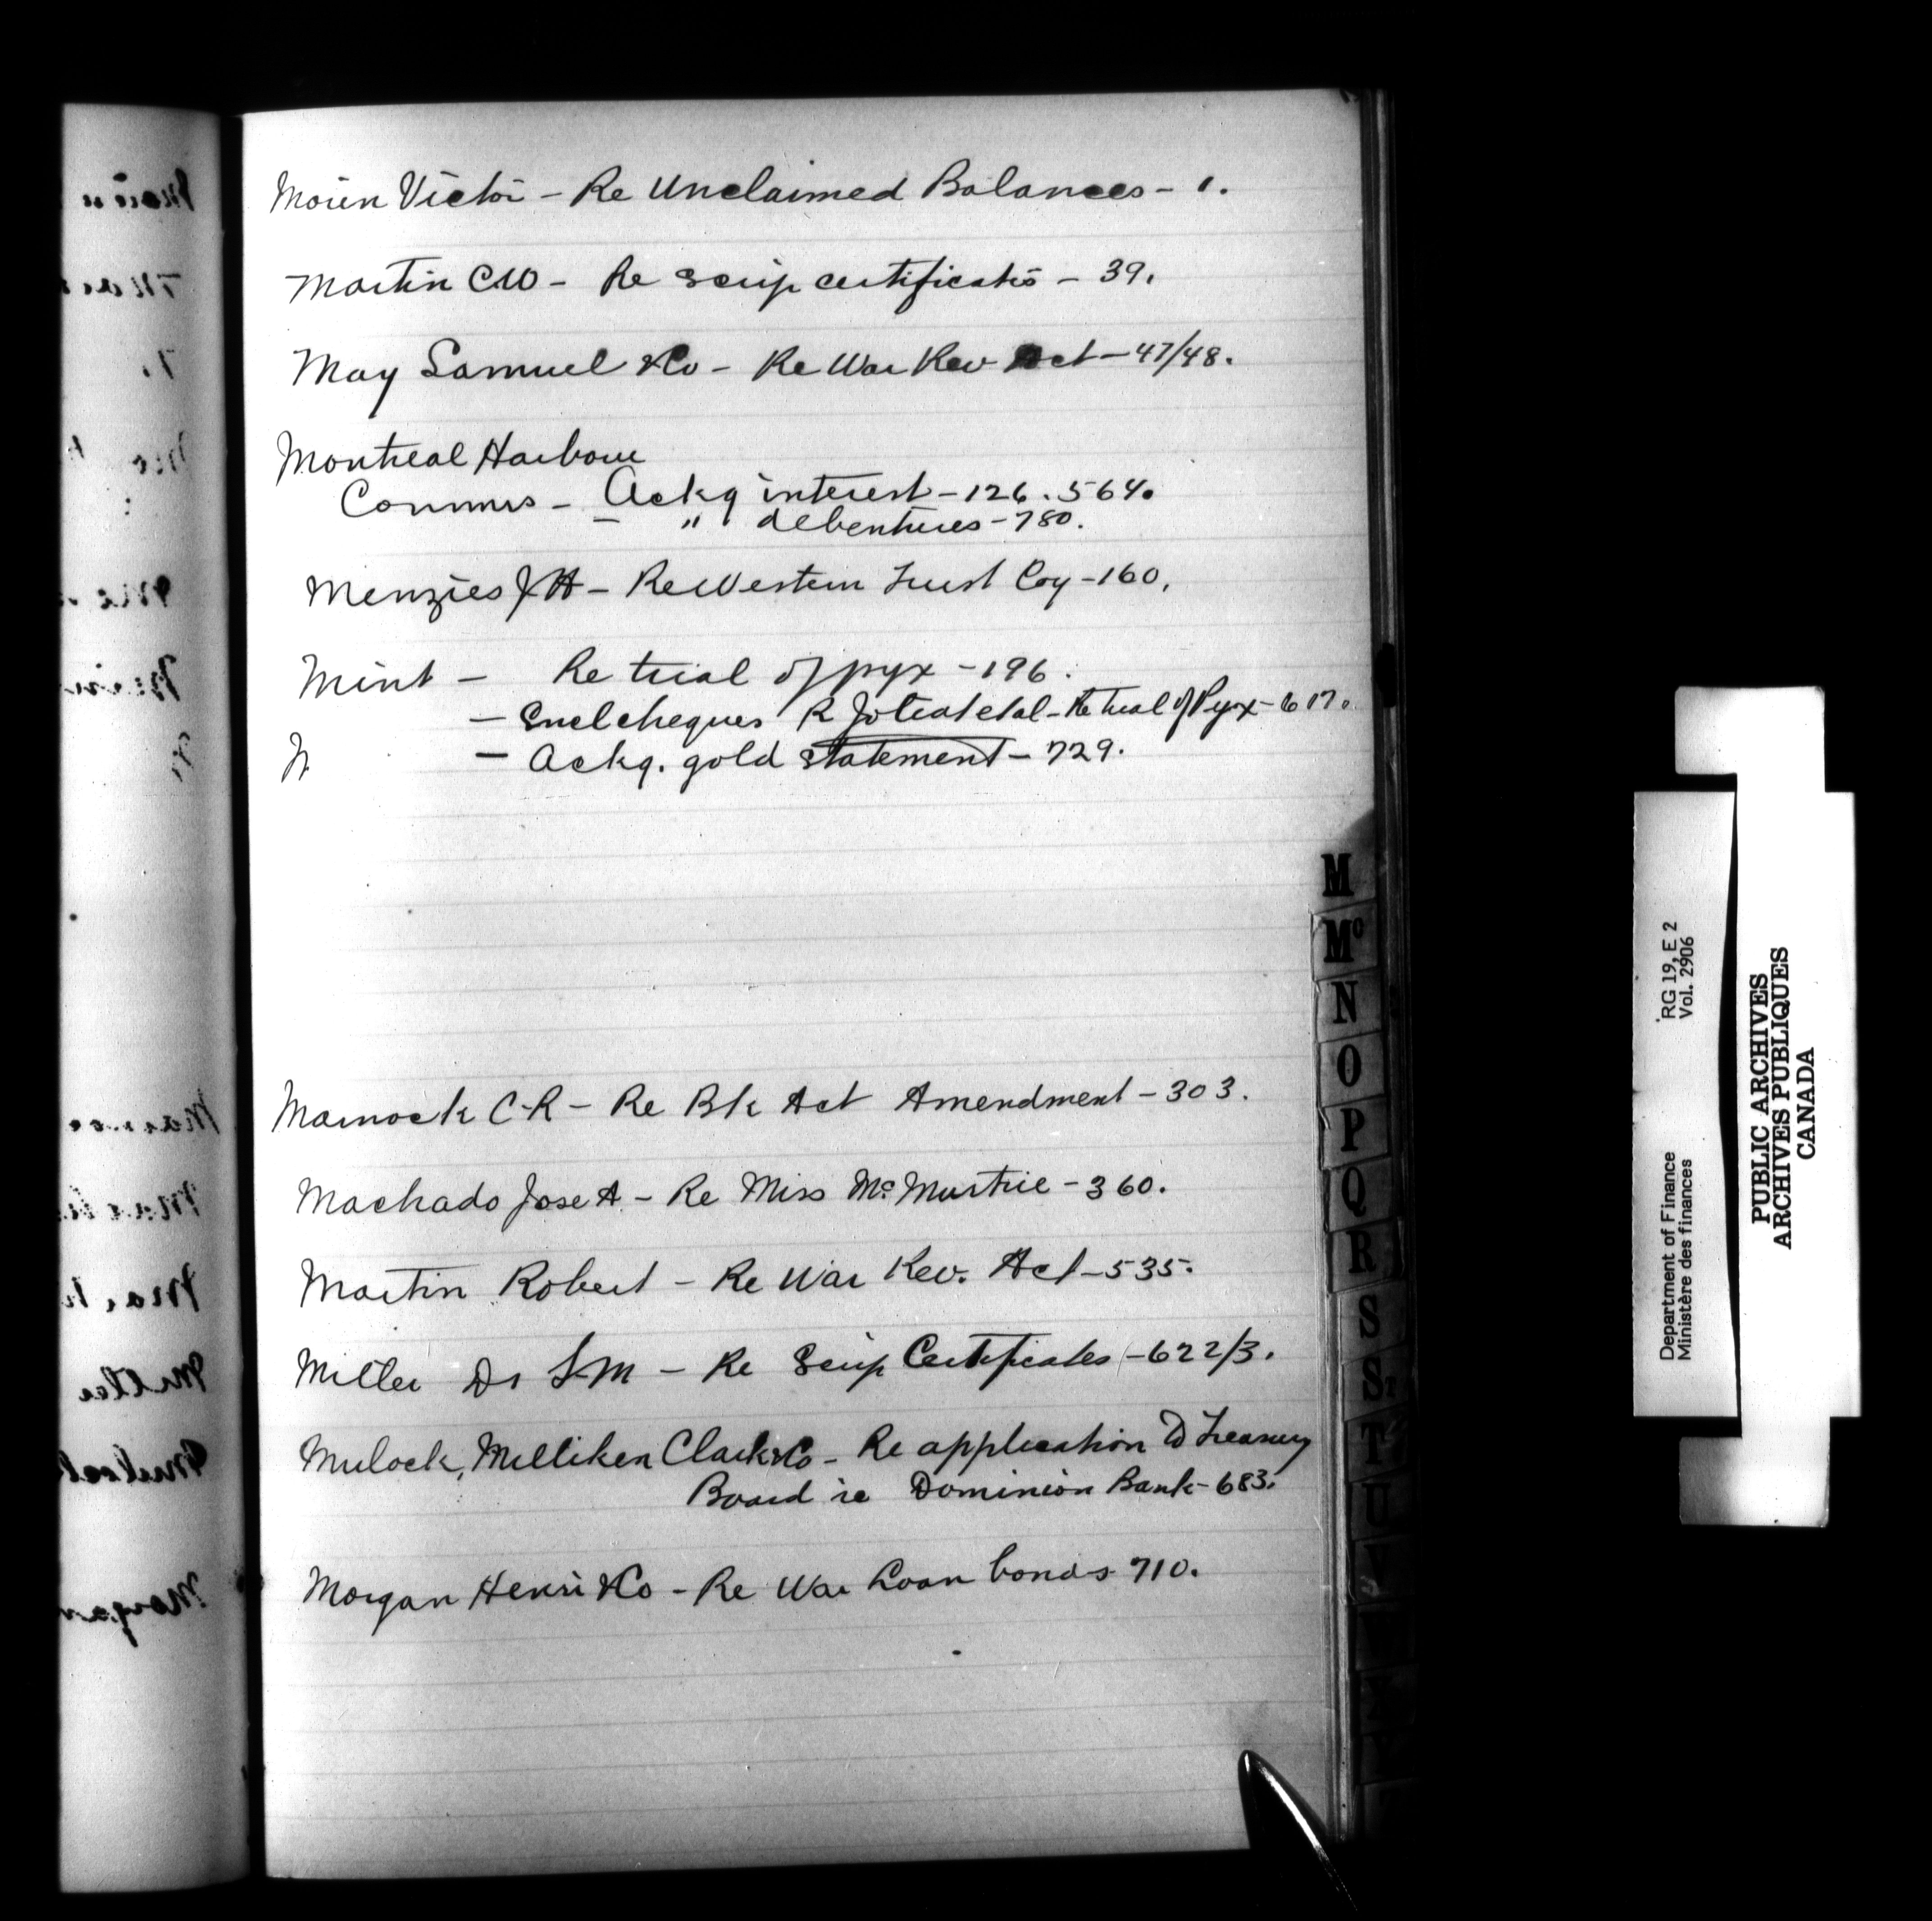 Morin Victor - Re Unclaimed Balances - 1.
Martin C W - Re scrip certificates - 39.
May Samuel & Co - Re War Rev Act - 47/48.
Montreal Harbour
Commrs - Ackg interest - 126. 564.
- " debentures - 780.
Menzies J H - Re Western Trust Coy - 160.
Mint - Re trial of pyx - 196.
- Encl cheques et al - Re trial of Pyx - 617.
- Ackg. gold statement - 729.
Marnock C R - Re Bk Act Amendment - 303.
Machado Jose A - Re Miss Mc Murtrie - 360.
Martin Robert - Re War Rev. Act - 535.
Miller Dr S M - Re Scrip Certificates - 622/3.
Mulock, Milliken Clark & Co - Re application to Treasury
Board re Dominion Bank - 683.
Morgan Henri & Co - Re War Loan bonds 710.
M
Mc
N
O
P
Q
R
S
S
T
U
RG 19, E 2
Vol. 2906
Department of Finance
Ministère des finances
PUBLIC ARCHIVES
ARCHIVES PUBLIQUES
CANADA